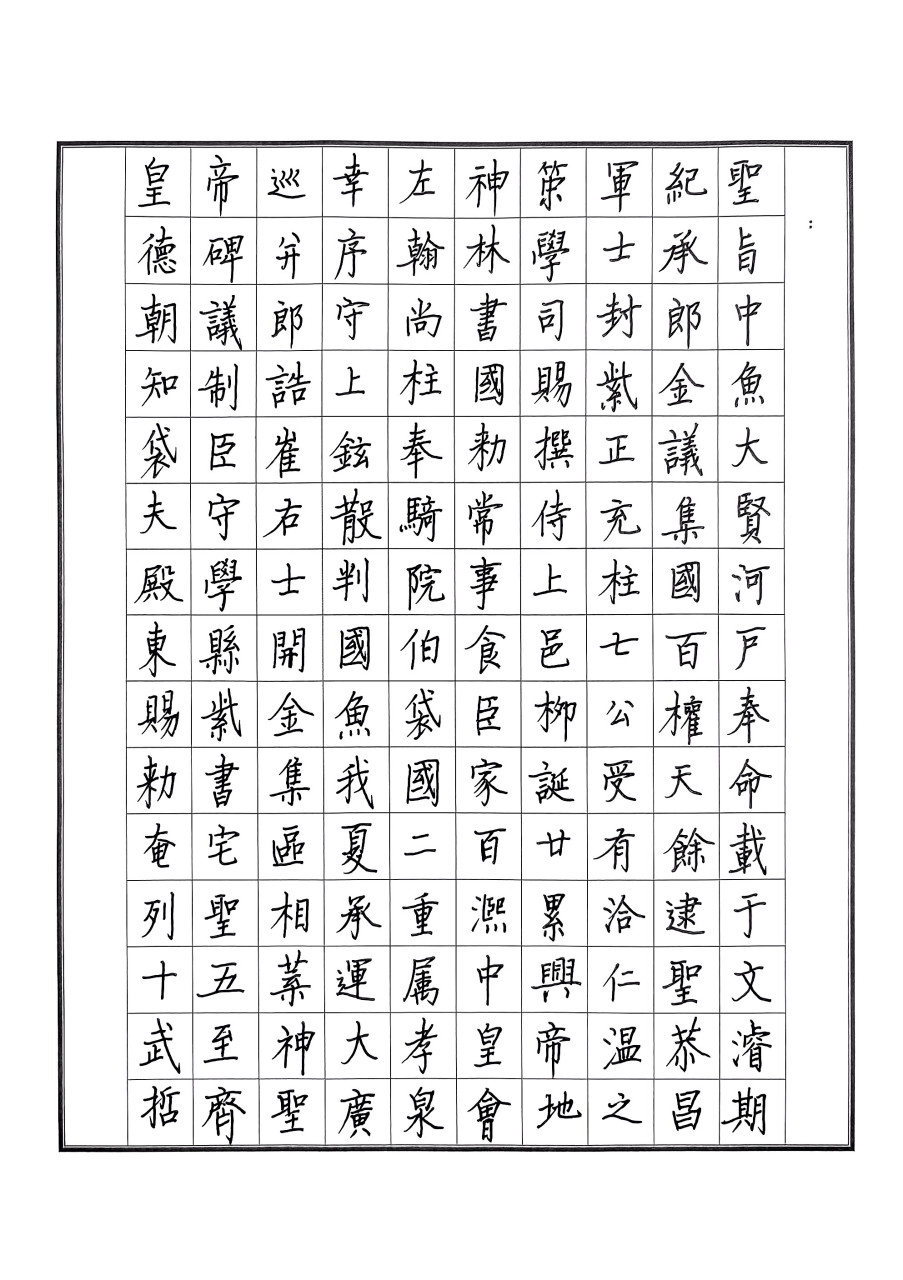 皇帝巡幸左神策軍紀聖
德碑并序翰林學士承旨
朝議郎守尚書司封郎中
知制誥上柱國賜紫金魚
袋臣崔鉉奉勑撰正議大
夫守右散騎常侍充集賢
殿學士判院事上柱國河
東縣開國伯食邑七百戶
賜紫金魚袋臣柳公權奉
勑書集我國家誕受天命
奄宅區夏二百廿有餘載
列聖相承重熙累洽逮于
十五葉運属中興仁聖文
武至神大孝皇帝温恭濬
哲齊聖廣泉會地之昌期